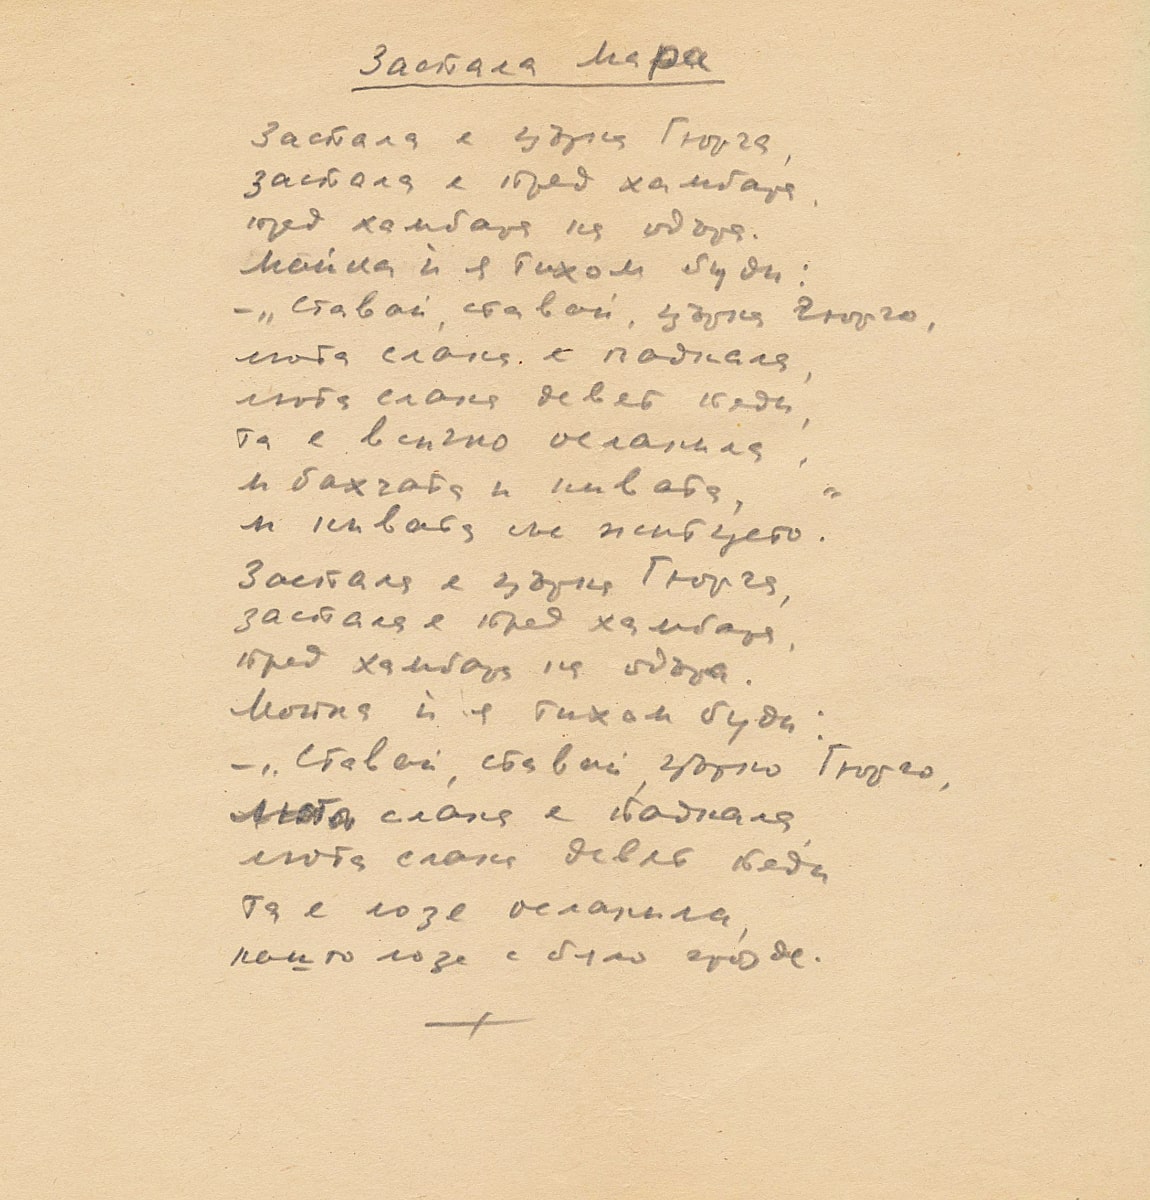 Застала Мара
Застала е църна Гюргя,
застала е пред хамбаря,
пред хамбаря на одъра.
Майка ѝ я тихом буди:
–„Ставай, ставай, църна Гюргьо,
люта слана е паднала,
люта слана девет педи,
та е всичко осланила,
и бахчата и нивата, "
и нивата със житцето.
Застала е църна Гюргя,
застала е пред хамбаря,
пред хамбаря на одъра.
Мойка ѝ я тихом буди:
–„Ставай, ставай, църно Гюргьо,
люта слана е паднала,
люта слана девет педи
та е лозе осланила,
лозе с бяло грозде.